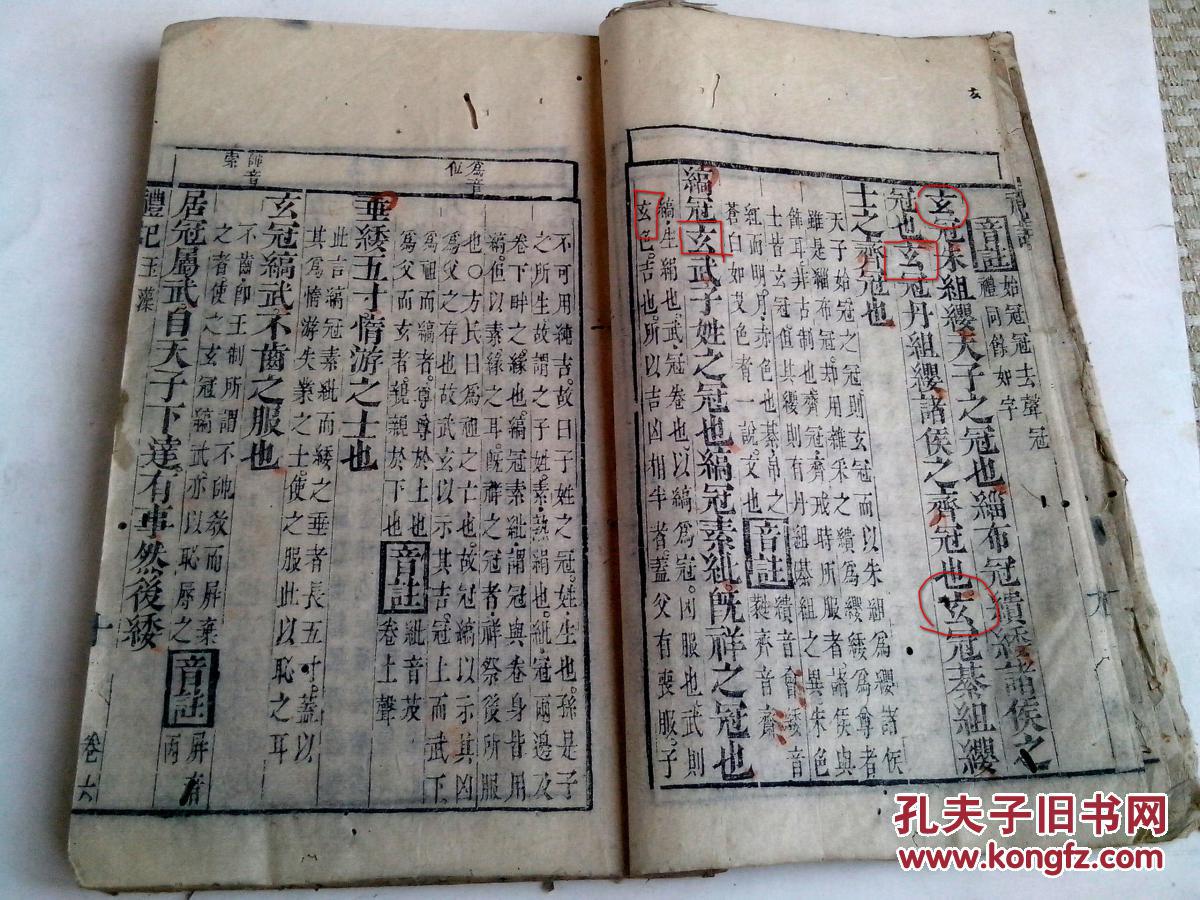 玄
禮記
音註 始冠冠去聲冠禮同餘如字
玄冠朱組纓天子之冠也緇布冠繢緌諸侯之
冠也玄冠丹組纓諸侯之齊冠也玄冠綦組纓
士之齊冠也
天子始冠之冠則玄冠而以朱組爲纓諸侯
雖是緇布冠却用雜采之繢爲纓緌爲尊者
飾耳非古制也齊冠齊戒時所服者諸侯與
士皆玄冠但其纓則有丹組綦組之異朱色
紅而明丹赤色也綦帛之
蒼白如艾色者一說文也 音註 繢音會緌音
蕤齊音齋
縞冠玄武子姓之冠也縞冠素紕旣祥之冠也
縞生絹也武冠卷也以縞爲冠凶服也武則
玄色吉也所以吉凶相半者蓋父有喪服子
爲音
位
帥音
索
不可用純吉故曰子姓之冠姓生也孫是子
之所生故謂之子姓素熟絹也紕冠兩邊及
卷下畔之緣也縞冠素紕謂冠與卷身皆用
縞但以素緣之耳旣祥之冠者祥祭後所服
也○方氏曰爲祖之亡也故冠縞以示其凶
爲父之存也故武玄以示其吉冠上而武下
爲祖而縞者尊尊於上也
爲父而玄者親親於下也 音註 紕音皮
卷上聲
垂緌五寸惰游之士也
此言縞冠素紕而緌之垂者長五寸蓋以
其爲惰游失業之士使之服此以恥之耳
玄冠縞武不齒之服也
不齒卽王制所謂不帥教而屏棄
之者使之玄冠縞武亦以恥辱之 音註 屏
居冠屬武自天子下達有事然後緌
禮記 玉藻 十 卷六
孔夫子旧书网
www.kongfz.com